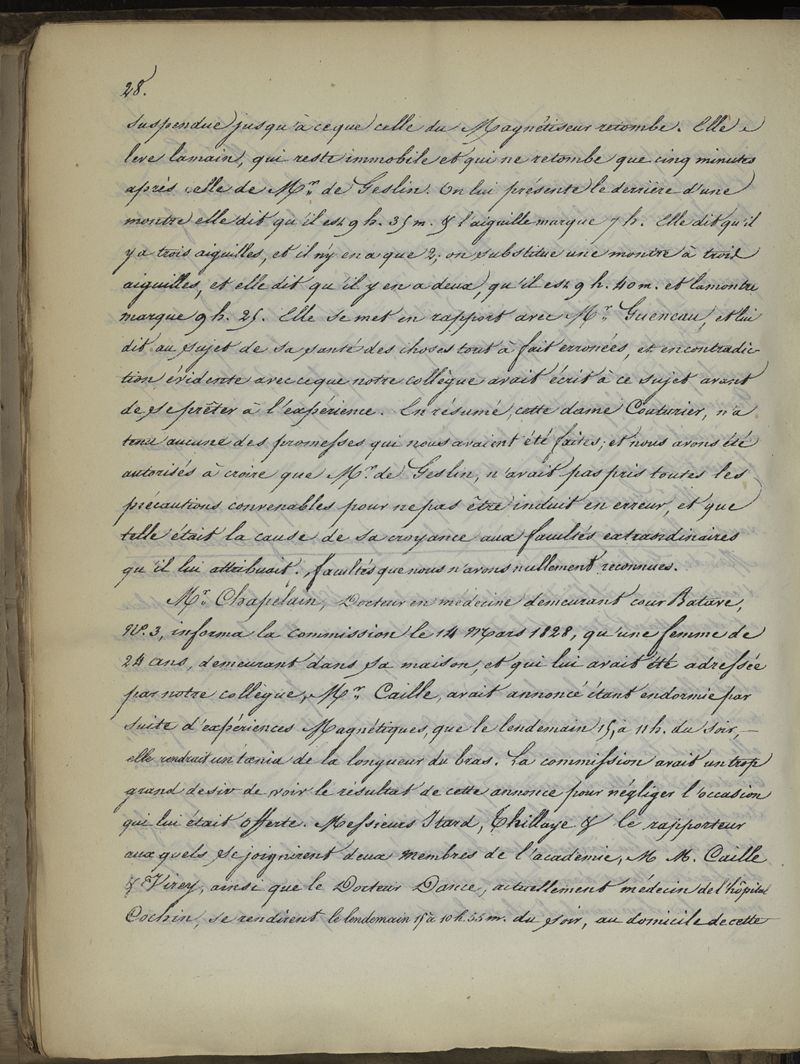 28.
suspendue jusqu'à ce que celle du Magnétiseur retombe. Elle
leve la main, qui reste immobile et qui ne retombe que cinq minutes
après celle de Mr. de Geslin. On lui présente le derrière d'une
montre elle dit qu'il est 9 h. 35 m. & l'aiguille marque 7 h. Elle dit qu'il
y a trois aiguilles, et il n'y en a que 2; on substitue une montre à trois
aiguilles, et elle dit qu'il y en a deux, qu'il est 9 h. 40 m. et la montre
marque 9 h. 25. Elle se met en rapport avec Mr. Gueneau, et lui
dit au sujet de sa santé des choses tout à fait erronées, et en contradic-
tion évidente avec ce que notre collègue avait écrit à ce sujet avant
de se prêter à l'expérience. En résumé, cette dame Couturier, n'a
tenu aucune des promesses qui nous avaient été faites; et nous avons été
autorisés à croire que Mr. de Geslin, n'avait pas pris toutes les
précautions convenables pour ne pas être induit en erreur, et que
telle était la cause de sa croyance aux facultés extraordinaires
qu'il lui attribuait., facultés que nous n'avons nullement reconnues.
Mr. Chapelain, Docteur en médecine demeurant cour Batave,
No. 3, informa la commission le 14 Mars 1828, qu'une femme de
24 ans, demeurant dans sa maison, et qui lui avait été adressée
par notre collègue, Mr. Caille, avait annoncé étant endormie par
suite d'expériences Magnétiques, que le lendemain 15, à 11 h. du soir, —
elle rendrait un tænia de la longueur du bras. La commission avait un trop
grand desir de voir le résultat de cette annonce pour négliger l'occasion
qui lui était offerte. Messieurs Itard, Thillaye & le rapporteur
aux quels se joignirent deux membres de l'académie, M. M. Caille
& Virey, ainsi que le Docteur Dance, actuellement médecin de l'hôpital
Cochin, se rendirent le lendemain 15 à 10 h. 55 m. du soir, au domicile de cette